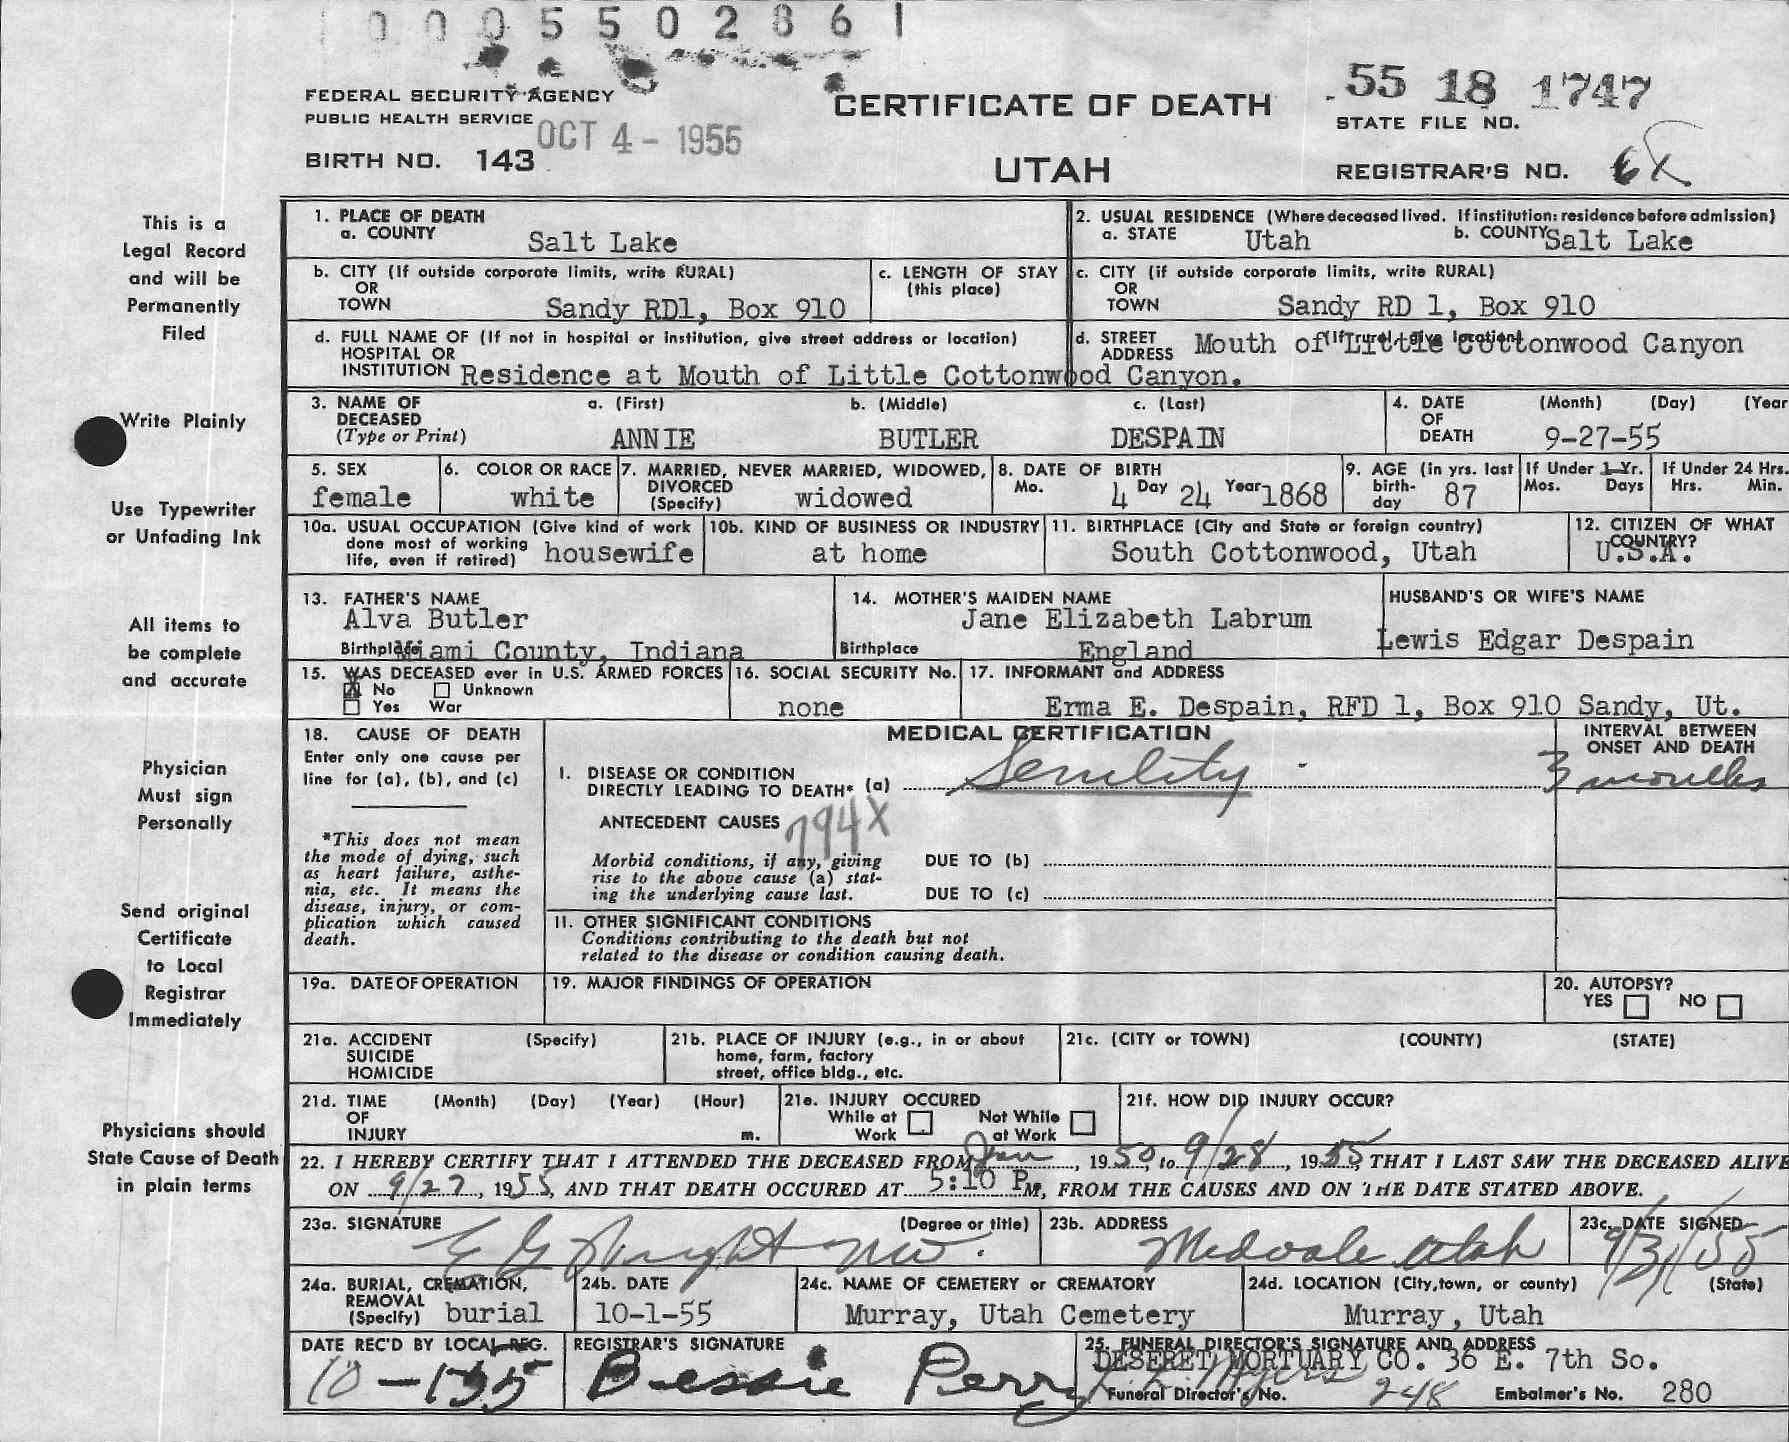 0 0 0 5 5 0 2 8 6 1
FEDERAL SECURITY AGENCY
PUBLIC HEALTH SERVICE
OCT 4 - 1955
BIRTH NO. 143
CERTIFICATE OF DEATH
UTAH
55 18 1747
STATE FILE NO.
REGISTRAR'S NO.
This is a
Legal Record
and will be
Permanently
Filed
Write Plainly
Use Typewriter
or Unfading Ink
All items to
be complete
and accurate
Physician
Must sign
Personally
Send original
Certificate
to Local
Registrar
Immediately
Physicians should
State Cause of Death
in plain terms
1. PLACE OF DEATH
a. COUNTY Salt Lake
2. USUAL RESIDENCE (Where deceased lived. If institution: residence before admission)
a. STATE Utah b. COUNTY Salt Lake
b. CITY (If outside corporate limits, write RURAL)
OR
TOWN Sandy RD1, Box 910
c. LENGTH OF STAY
(this place)
c. CITY (if outside corporate limits, write RURAL)
OR
TOWN Sandy RD 1, Box 910
d. FULL NAME OF (If not in hospital or institution, give street address or location)
HOSPITAL OR
INSTITUTION Residence at Mouth of Little Cottonwood Canyon.
d. STREET (If rural, give location)
ADDRESS Mouth of Little Cottonwood Canyon
3. NAME OF DECEASED (Type or Print)
a. (First) b. (Middle) c. (Last)
ANNIE BUTLER DESPAIN
4. DATE OF DEATH (Month) (Day) (Year
9-27-55
5. SEX
female
6. COLOR OR RACE
white
7. MARRIED, NEVER MARRIED, WIDOWED,
DIVORCED
(Specify) widowed
8. DATE OF BIRTH
Mo. 4 Day 24 Year 1868
9. AGE (in yrs. last
birth-
day 87
If Under 1 Yr.
Mos. Days
If Under 24 Hrs.
Hrs. Min.
10a. USUAL OCCUPATION (Give kind of work
done most of working
life, even if retired) housewife
10b. KIND OF BUSINESS OR INDUSTRY
at home
11. BIRTHPLACE (City and State or foreign country)
South Cottonwood, Utah
12. CITIZEN OF WHAT
COUNTRY?
U.S.A.
13. FATHER'S NAME
Alva Butler
Birthplace Miami County, Indiana
14. MOTHER'S MAIDEN NAME
Jane Elizabeth Labrum
Birthplace England
HUSBAND'S OR WIFE'S NAME
Lewis Edgar Despain
15. WAS DECEASED ever in U.S. ARMED FORCES
X No Unknown
Yes War
16. SOCIAL SECURITY No.
none
17. INFORMANT and ADDRESS
Erma E. Despain, RFD 1, Box 910 Sandy, Ut.
18. CAUSE OF DEATH
Enter only one cause per
line for (a), (b), and (c)
*This does not mean
the mode of dying, such
as heart failure, asthe-
nia, etc. It means the
disease, injury, or com-
plication which caused
death.
MEDICAL CERTIFICATION
INTERVAL BETWEEN
ONSET AND DEATH
I. DISEASE OR CONDITION
DIRECTLY LEADING TO DEATH* (a) Senility 3 months
ANTECEDENT CAUSES 794X
Morbid conditions, if any, giving
rise to the above cause (a) stat-
ing the underlying cause last.
DUE TO (b)
DUE TO (c)
II. OTHER SIGNIFICANT CONDITIONS
Conditions contributing to the death but not
related to the disease or condition causing death.
19a. DATE OF OPERATION
19. MAJOR FINDINGS OF OPERATION
20. AUTOPSY?
YES NO
21a. ACCIDENT (Specify)
SUICIDE
HOMICIDE
21b. PLACE OF INJURY (e.g., in or about
home, farm, factory
street, office bldg., etc.
21c. (CITY or TOWN) (COUNTY) (STATE)
21d. TIME (Month) (Day) (Year) (Hour)
OF
INJURY m.
21e. INJURY OCCURED
While at Work Not While at Work
21f. HOW DID INJURY OCCUR?
22. I HEREBY CERTIFY THAT I ATTENDED THE DECEASED FROM Jan, 1950, to 9/28, 1955, THAT I LAST SAW THE DECEASED ALIVE
ON 9/27, 1955, AND THAT DEATH OCCURED AT 5:10 P M, FROM THE CAUSES AND ON THE DATE STATED ABOVE.
23a. SIGNATURE (Degree or title)
23b. ADDRESS
Midvale Utah
23c. DATE SIGNED
24a. BURIAL, CREMATION,
REMOVAL
(Specify) burial
24b. DATE
10-1-55
24c. NAME OF CEMETERY or CREMATORY
Murray, Utah Cemetery
24d. LOCATION (City, town, or county) (State)
Murray, Utah
DATE REC'D BY LOCAL REG.
REGISTRAR'S SIGNATURE
Bessie Perry
25. FUNERAL DIRECTOR'S SIGNATURE AND ADDRESS
DESERET MORTUARY CO. 36 E. 7th So.
Funeral Director's No. 248 Embalmer's No. 280